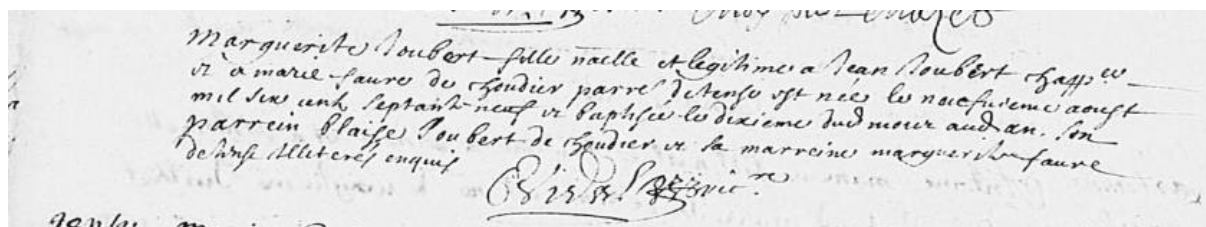 Marguerite Joubert fille naelle et legitime a Jean Joubert chapp.er
et a marie faure de choudier parres de tense est née le neufvieme aoust
mil six cents septante neuf et baptisée le dixieme dud mois aud an. son
parrein blaise Joubert de choudier et sa marreine marguerite faure
de tense illiteres enquis
vic.re